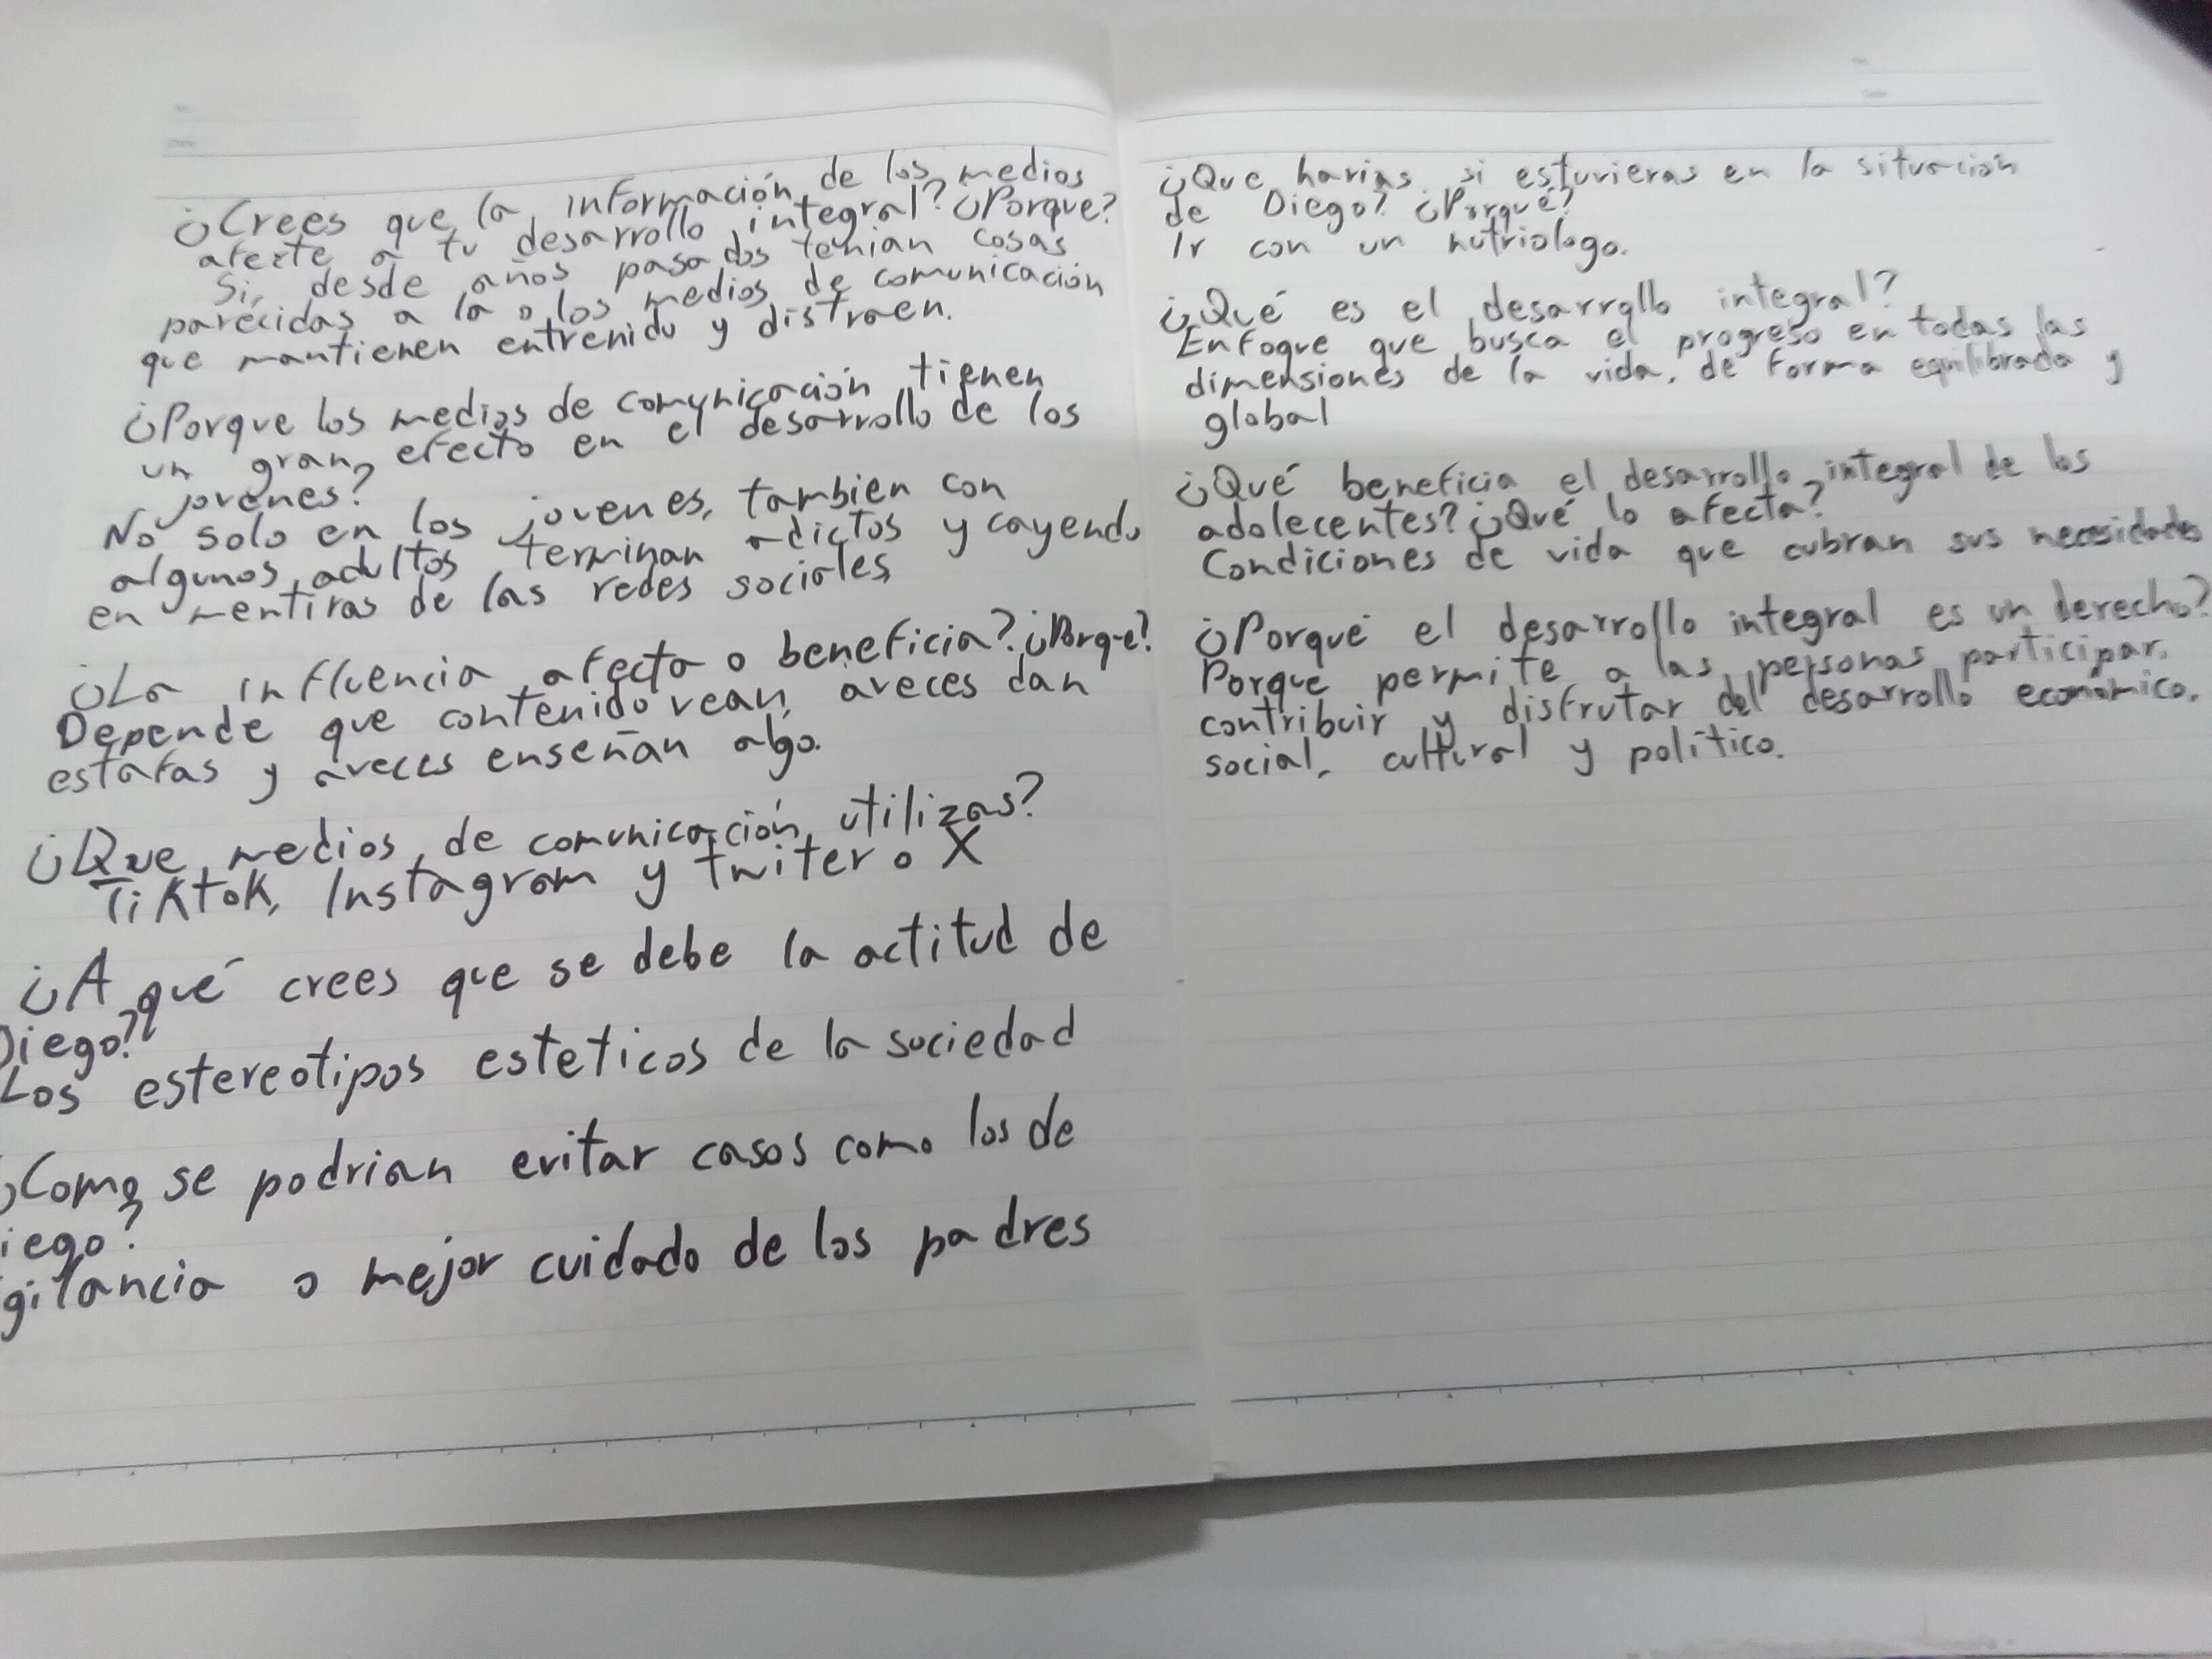 ¿Crees que la información de los medios
afecte a tu desarrollo integral? ¿Porque?
Si, desde años pasados tenian cosas
parecidas a la o los medios de comunicación
que mantienen entrenido y distraen.
¿Porque los medios de comunicación tienen
un gran efecto en el desarrollo de los
jovenes?
No solo en los jovenes, tambien con
algunos adultos terminan adictos y cayendo
en mentiras de las redes sociales
¿La influencia afecta o beneficia? ¿Porque?
Depende que contenido vean, aveces dan
estafas y aveces enseñan algo.
¿Que medios de comunicación utilizas?
TikTok, Instagram y twiter o X
¿A qué crees que se debe la actitud de
Diego?
Los estereotipos esteticos de la sociedad
¿Como se podrian evitar casos como los de
iego?
gilancia o mejor cuidado de los padres
¿Que harias si estuvieras en la situación
de Diego? ¿Porqué?
Ir con un nutriologo.
¿Qué es el desarrollo integral?
Enfoque que busca el progreso en todas las
dimensiones de la vida, de forma equilibrada y
global
¿Qué beneficia el desarrollo integral de los
adolecentes? ¿Qué lo afecta?
Condiciones de vida que cubran sus necesidades
¿Porqué el desarrollo integral es un derecho?
Porque permite a las personas participar,
contribuir y disfrutar del desarrollo económico,
social, cultural y político.